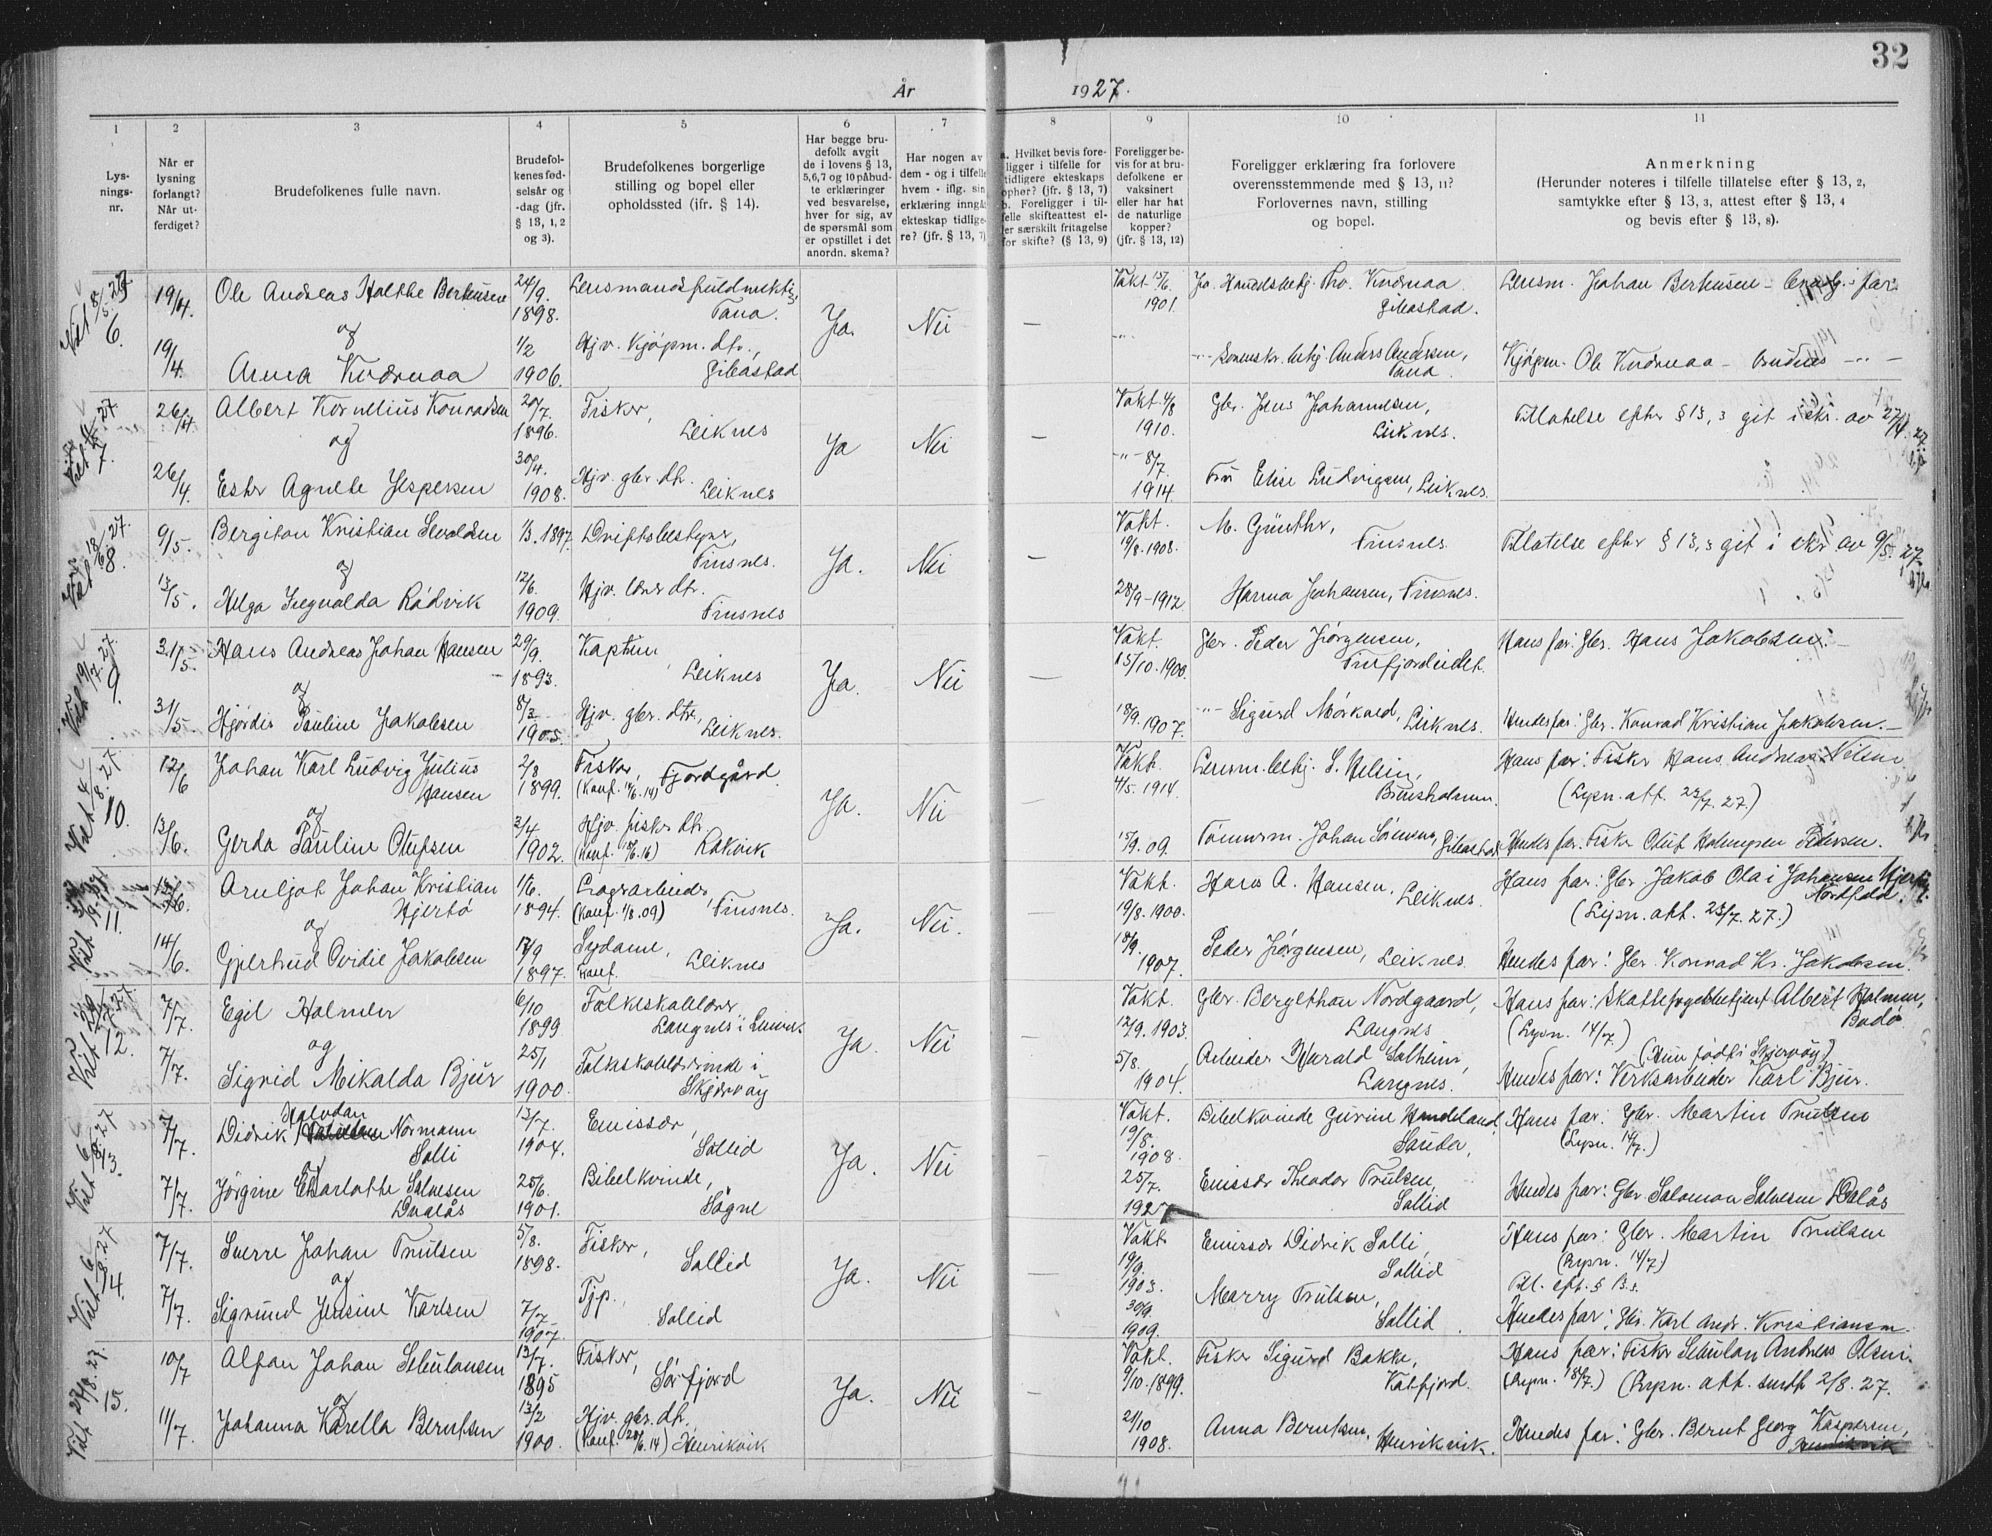 32
År 1927.
1 2 3 4 5 6 7 8 9 10 11
Lysningsnr.
Når er lysning forlangt? Når utferdiget?
Brudefolkenes fulle navn.
Brudefolkenes fødselsår og -dag (jfr. § 13, 1, 2 og 3).
Brudefolkenes borgerlige stilling og bopel eller opholdssted (ifr. § 14).
Har begge brudefolk avgit de i lovens § 13, 5,6,7 og 10 påbudte erklæringer ved besvarelse, hver for sig, av de spørsmål som er opstillet i det anordn. skema?
Har nogen av dem - og i tilfelle hvem - iflg. sin erklæring inngått ekteskap tidligere? (jfr. § 13, 7)
a. Hvilket bevis foreligger i tilfelle for tidligere ekteskaps ophør? (jfr. § 13, 7) b. Foreligger i tilfelle skifteattest eller særskilt fritagelse for skifte? (§ 13, 9)
Foreligger bevis for at brudefolkene er vaksinert eller har hat de naturlige kopper? (jfr. § 13, 12)
Foreligger erklæring fra forlovere overensstemmende med § 13, 11? Forlovernes navn, stilling og bopel.
Anmerkning (Herunder noteres i tilfelle tillatelse efter § 13, 2, samtykke efter § 13, 3, attest efter § 13, 4 og bevis efter § 13, 8).
6. 19/4. Ole Andreas Holthe Berteusen 24/9. 1898. Lensmandsfuldmektig, Tana. Ja. Nei — Vakt 15/6. 1901. Ja. Handelsbetj. Kværnaa. Gibostad. Lensm. Johan Berteusen
og
19/4. Anna Kværnaa 1/2 1906. Hjv. kjøpm. dtr., Gibostad Anders Andersen, Tana. Kjøpm. Ole Kværnaa
7. 26/4 Albert Kornelius Konradsen 20/7. 1896. Fisker, Leiknes Ja Nei — Vakt 4/8 1910. Gbr. Jens Johannesen, Leiknes. Tillatelse efter § 13, 3 git i skr. av 27/4 27.
og
26/4. Ester Agnete Jespersen 30/4. 1908. Hjv. gbr. dtr. Leiknes 8/7. 1914. Fru Elise Ludvigsen, Leiknes.
8. 9/5. Bergiton Kristian 1/3. 1897. Driftsbestyrer, Finsnes. Ja. Nei — Vakt. 19/8. 1908. M. Günther, Finsnes. Tillatelse efter § 13, 3 git i skr. av 9/5. 27.
og
13/5. Helga Rødvik 12/6. 1909. Hjv. lærer dtr. Finsnes 28/9-1912. Hanna Johansen, Finsnes.
9. 31/5. Hans Andreas Johan Hansen 29/9. 1893. Kaptein, Leiknes Ja. Nei — Vakt. 15/10. 1900. Gbr. Peder Jørgensen, Finfjordeidet. Hans far: Gbr. Hans Jakobsen. —
og
31/5 Hjørdis Pauline Jakobsen 8/3 1905. Hjv. gbr. dtr., Leiknes. 18/9. 1907. Sigurd Mørkved, Leiknes. Hendes far: Gbr. Konrad Kristian Jakobsen. —
10. 12/6 Johan Karl Ludvig Julius Hansen 2/8 1899. Fisker, Fjordgård Ja. Nei — Vakt. 4/5. 1914. Lensm. betj. S. Nilsen, Hans far: Fisker Hans Andreas Nilsen. (Lysn. att. 23/7. 27.)
og
13/6. Gerda Pauline Olufsen 2/4 1902. Hjv. fisker dtr. Rakvik 15/9. 09. Tømmerm. Johan Gibostad Hendes far. Fisker Oluf Pedersen.
11. Arnljot Johan Kristian Hjertø 1/6. 1894. Lagerarbeider, (Konf. 1/8. 09) Finsnes. Ja. Nei. — Vakt. 19/8. 1900. Hans A. Hansen, Leiknes. Hans far: Gbr Jakob Olai Johansen Hjertø, Nordfold. (Lysn. att. 23/7. 27.)
og
14/6. Gjertrud Ovidie Jakobsen 17/9 1897. Sydame, Konf. Leiknes 18/9. 1907. Peder Jørgensen, Leiknes. Hendes far: Gbr. Konrad Kr. Jakobsen.
12. 7/7. Egil Holmen 6/10 1899. Folkeskolelærer, Langnes i Ja. Nei — Vakt. 12/9. 1903. Gbr. Bergethon Nordgaard, Langnes Hans far: Skattefogdbetjent Albert Holmen, Bodø (Lysn. 14/7)
og
7/7. Sigrid Mikalda Bjur 25/1 1900. Folkeskolelærerinde i Skjervøy 5/8. 1904. Arbeider Harald Solheim, Langnes. (Hun født i Skjervøy) Hendes far: Verksarbeider Karl Bjur.
13. 7/7. Didrik Halvdan Normann Solli 13/7. 1904. Emissær, Sollid Ja. Nei — Vakt. 19/8. 1908. Bibelkvinde Gurine Handeland, Sauda, Hans far: Gbr. Martin Trulsen (Lysn. 14/7.)
og
7/7. Jørgine Charlotte Salvesen 25/6. 1901. Bibelkvinde, Søgne 25/7. 1927 Emissær Theodor Trulsen, Sollid Hendes far: Gbr. Salomon Salvesen
14. 7/7. Sverre Johan Trulsen 5/8. 1898. Fisker, Sollid Ja. Nei — Vakt. 19/9. 1903. Emissær Didrik Solli, Sollid Hans far: Gbr. Martin Trulsen (Lysn. 14/7)
og
7/7. Sigrund Jensine Karlsen 7/7- 1907. Tjp. Sollid 30/9 1909. Marry Trulsen, Sollid. Hendes far: Gbr. Karl Andr. Kristiansen.
15. 10/7 Alfon Johan Sebulonsen 13/7. 1895 Fisker, Sørfjord Ja. Nei — Vakt. 9/10. 1899. Fisker Sigurd Bakke, Katfjord. Hans far: Fisker Sebulon Andreas Olsen. (Lysn. 18/7.) (Lysn. att. sendt 2/8. 27.
og
11/7. Johanna Karella Berntsen 13/2 1900. Hjv. gbr. dtr. (Konf. 20/6. 14) Henrikvik 21/10 1908. Anna Berntsen, Henrikvik. Hendes far: Gbr. Bernt Georg Kaspersen,